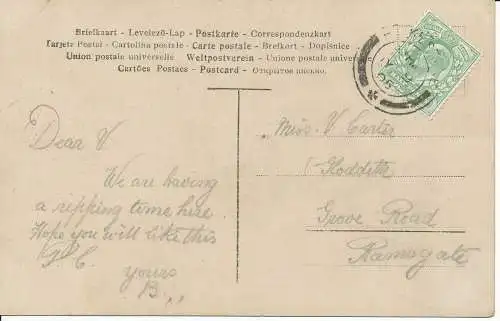 Briefkaart - Levelező-Lap - Postkarte - Correspondenzkart
Tarjeta Postal - Cartolina postale - Carte postale - Brefkort - Dopisnice
Union postale universelle Weltpostverein - Unione postale univer
Cartões Postaes - Postcard - Открытое письмо.
Dear V
We are having
a ripping time here
Hope you will like this
P. C.
yours
B.,,
Miss V Carter
Grove Road
Ramsgate